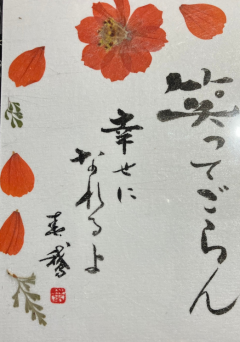 笑ってごらん
幸せに
なれるよ